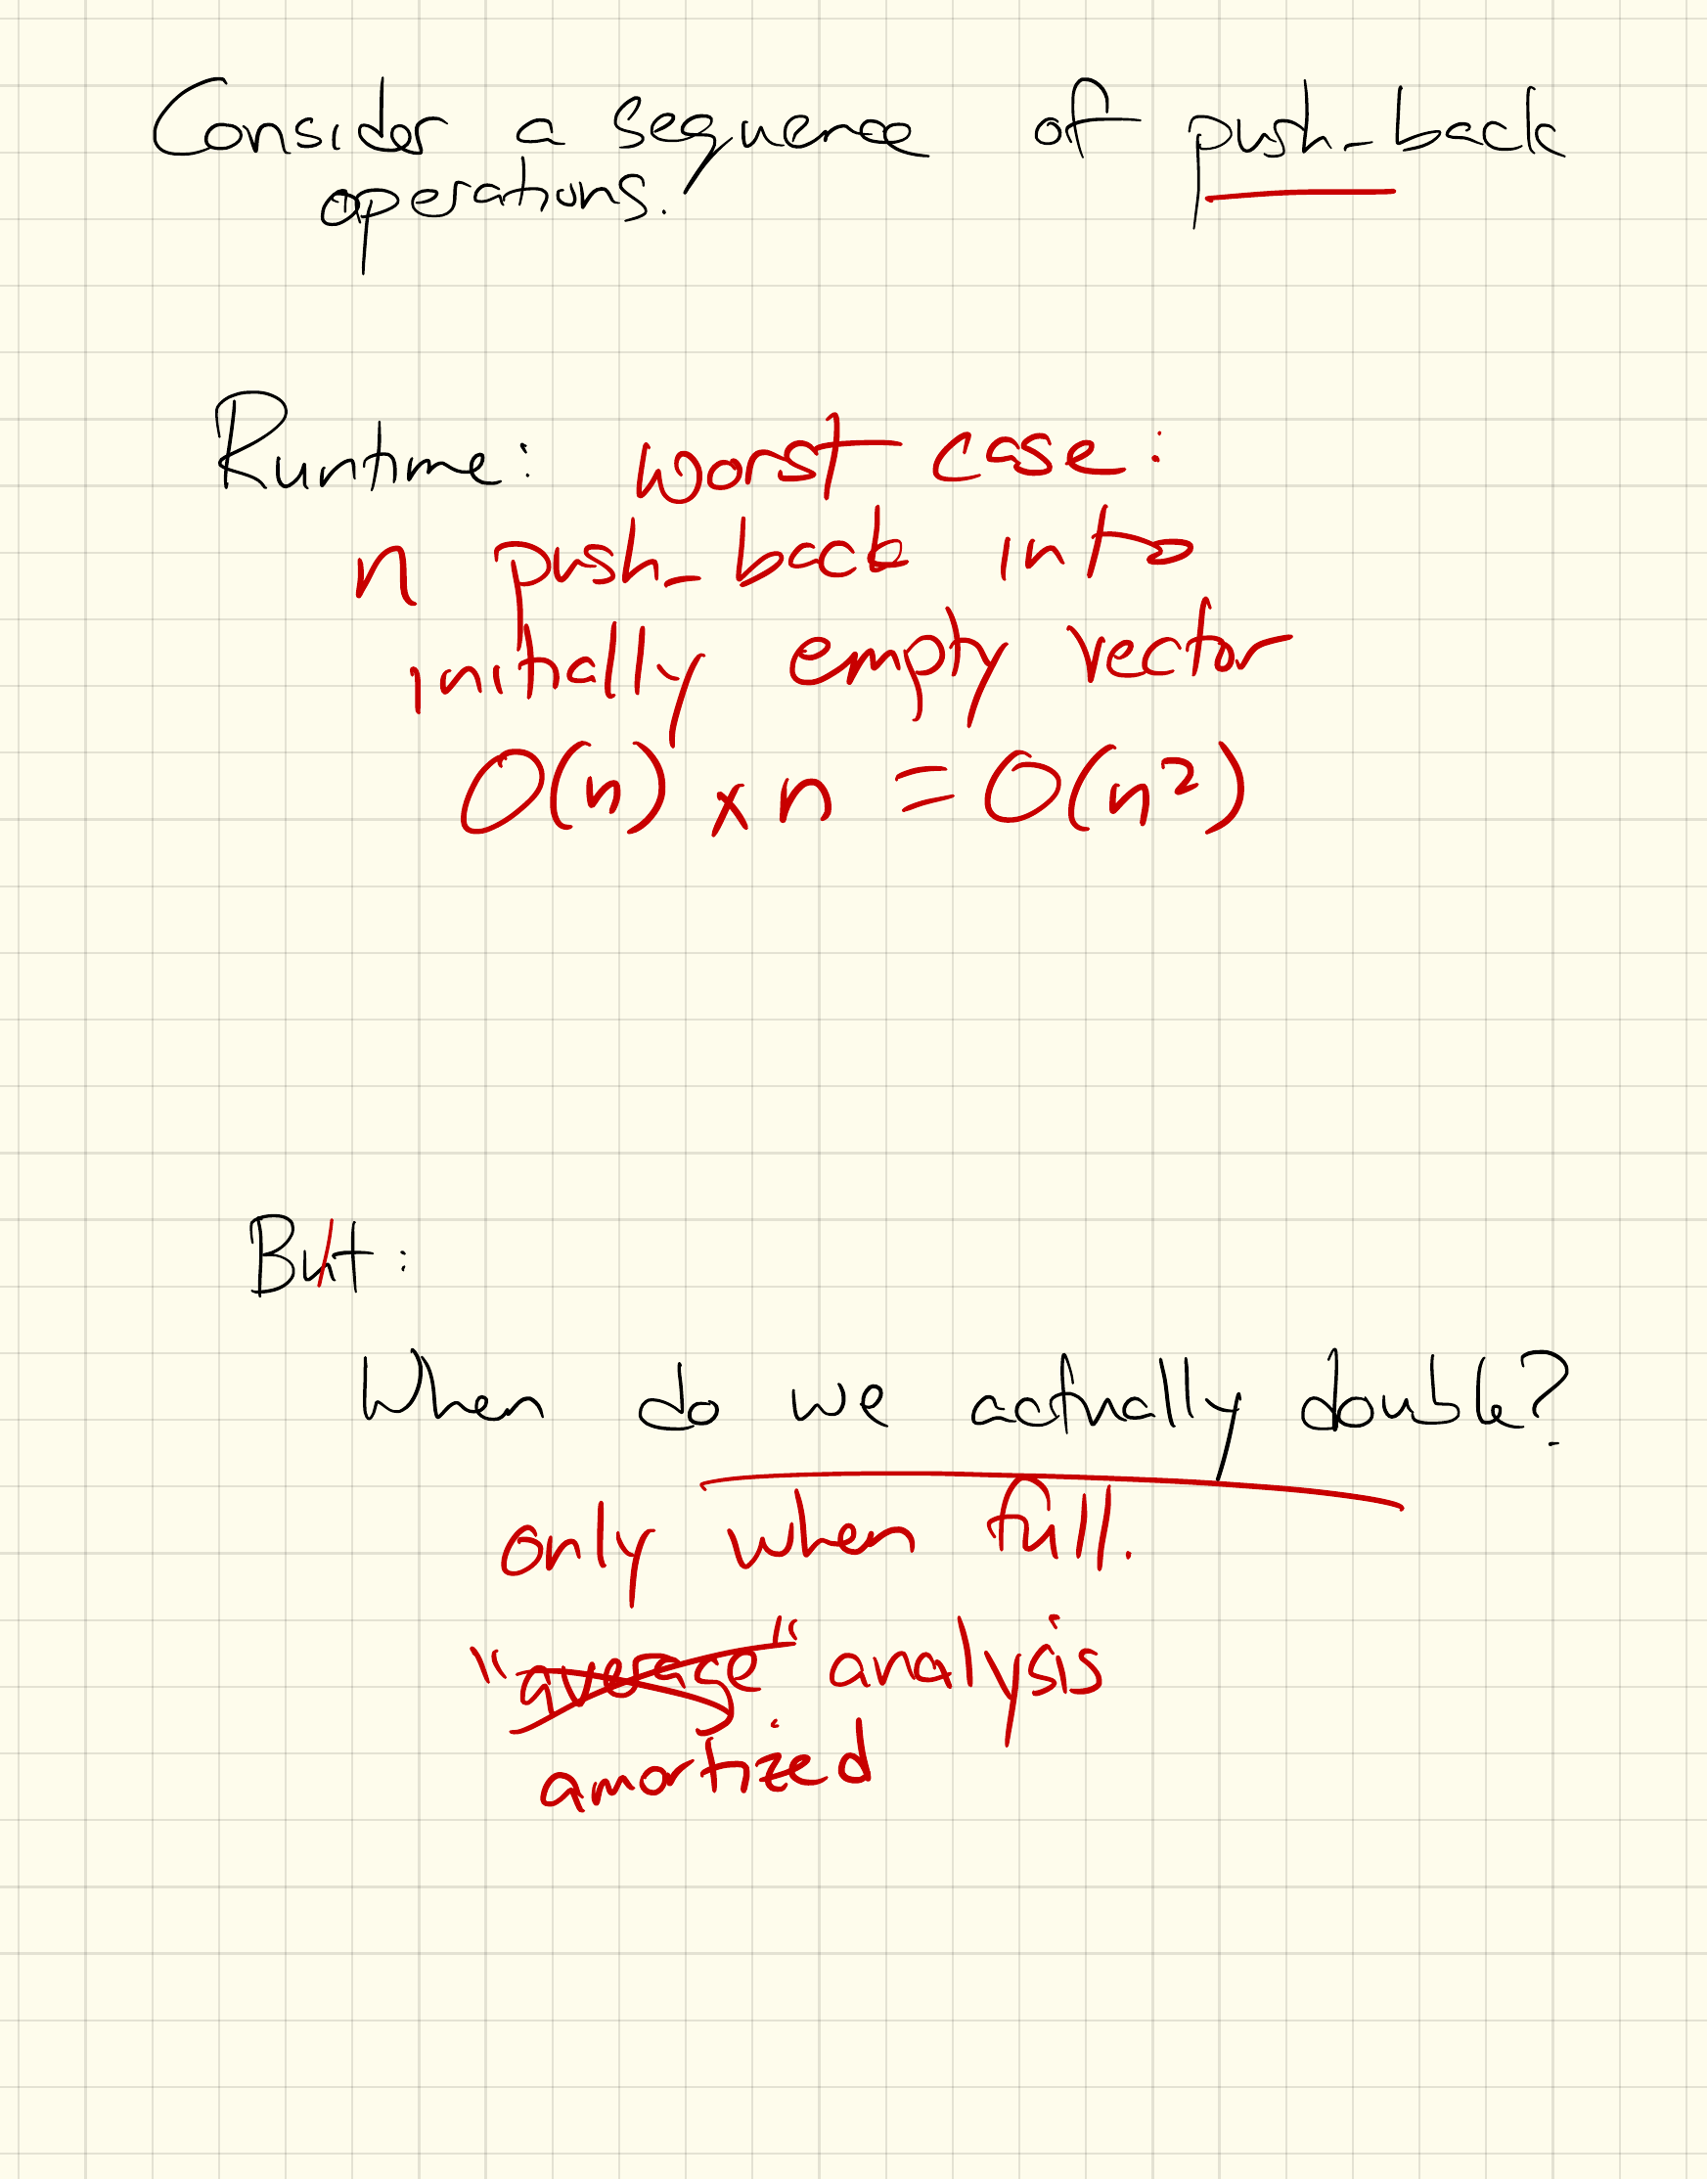 Consider a sequence of push_back
operations.
Runtime: worst case:
n push_back into
initially empty vector
O(n) x n = O(n²)
But:
When do we actually double?
only when full.
"average" analysis
amortized